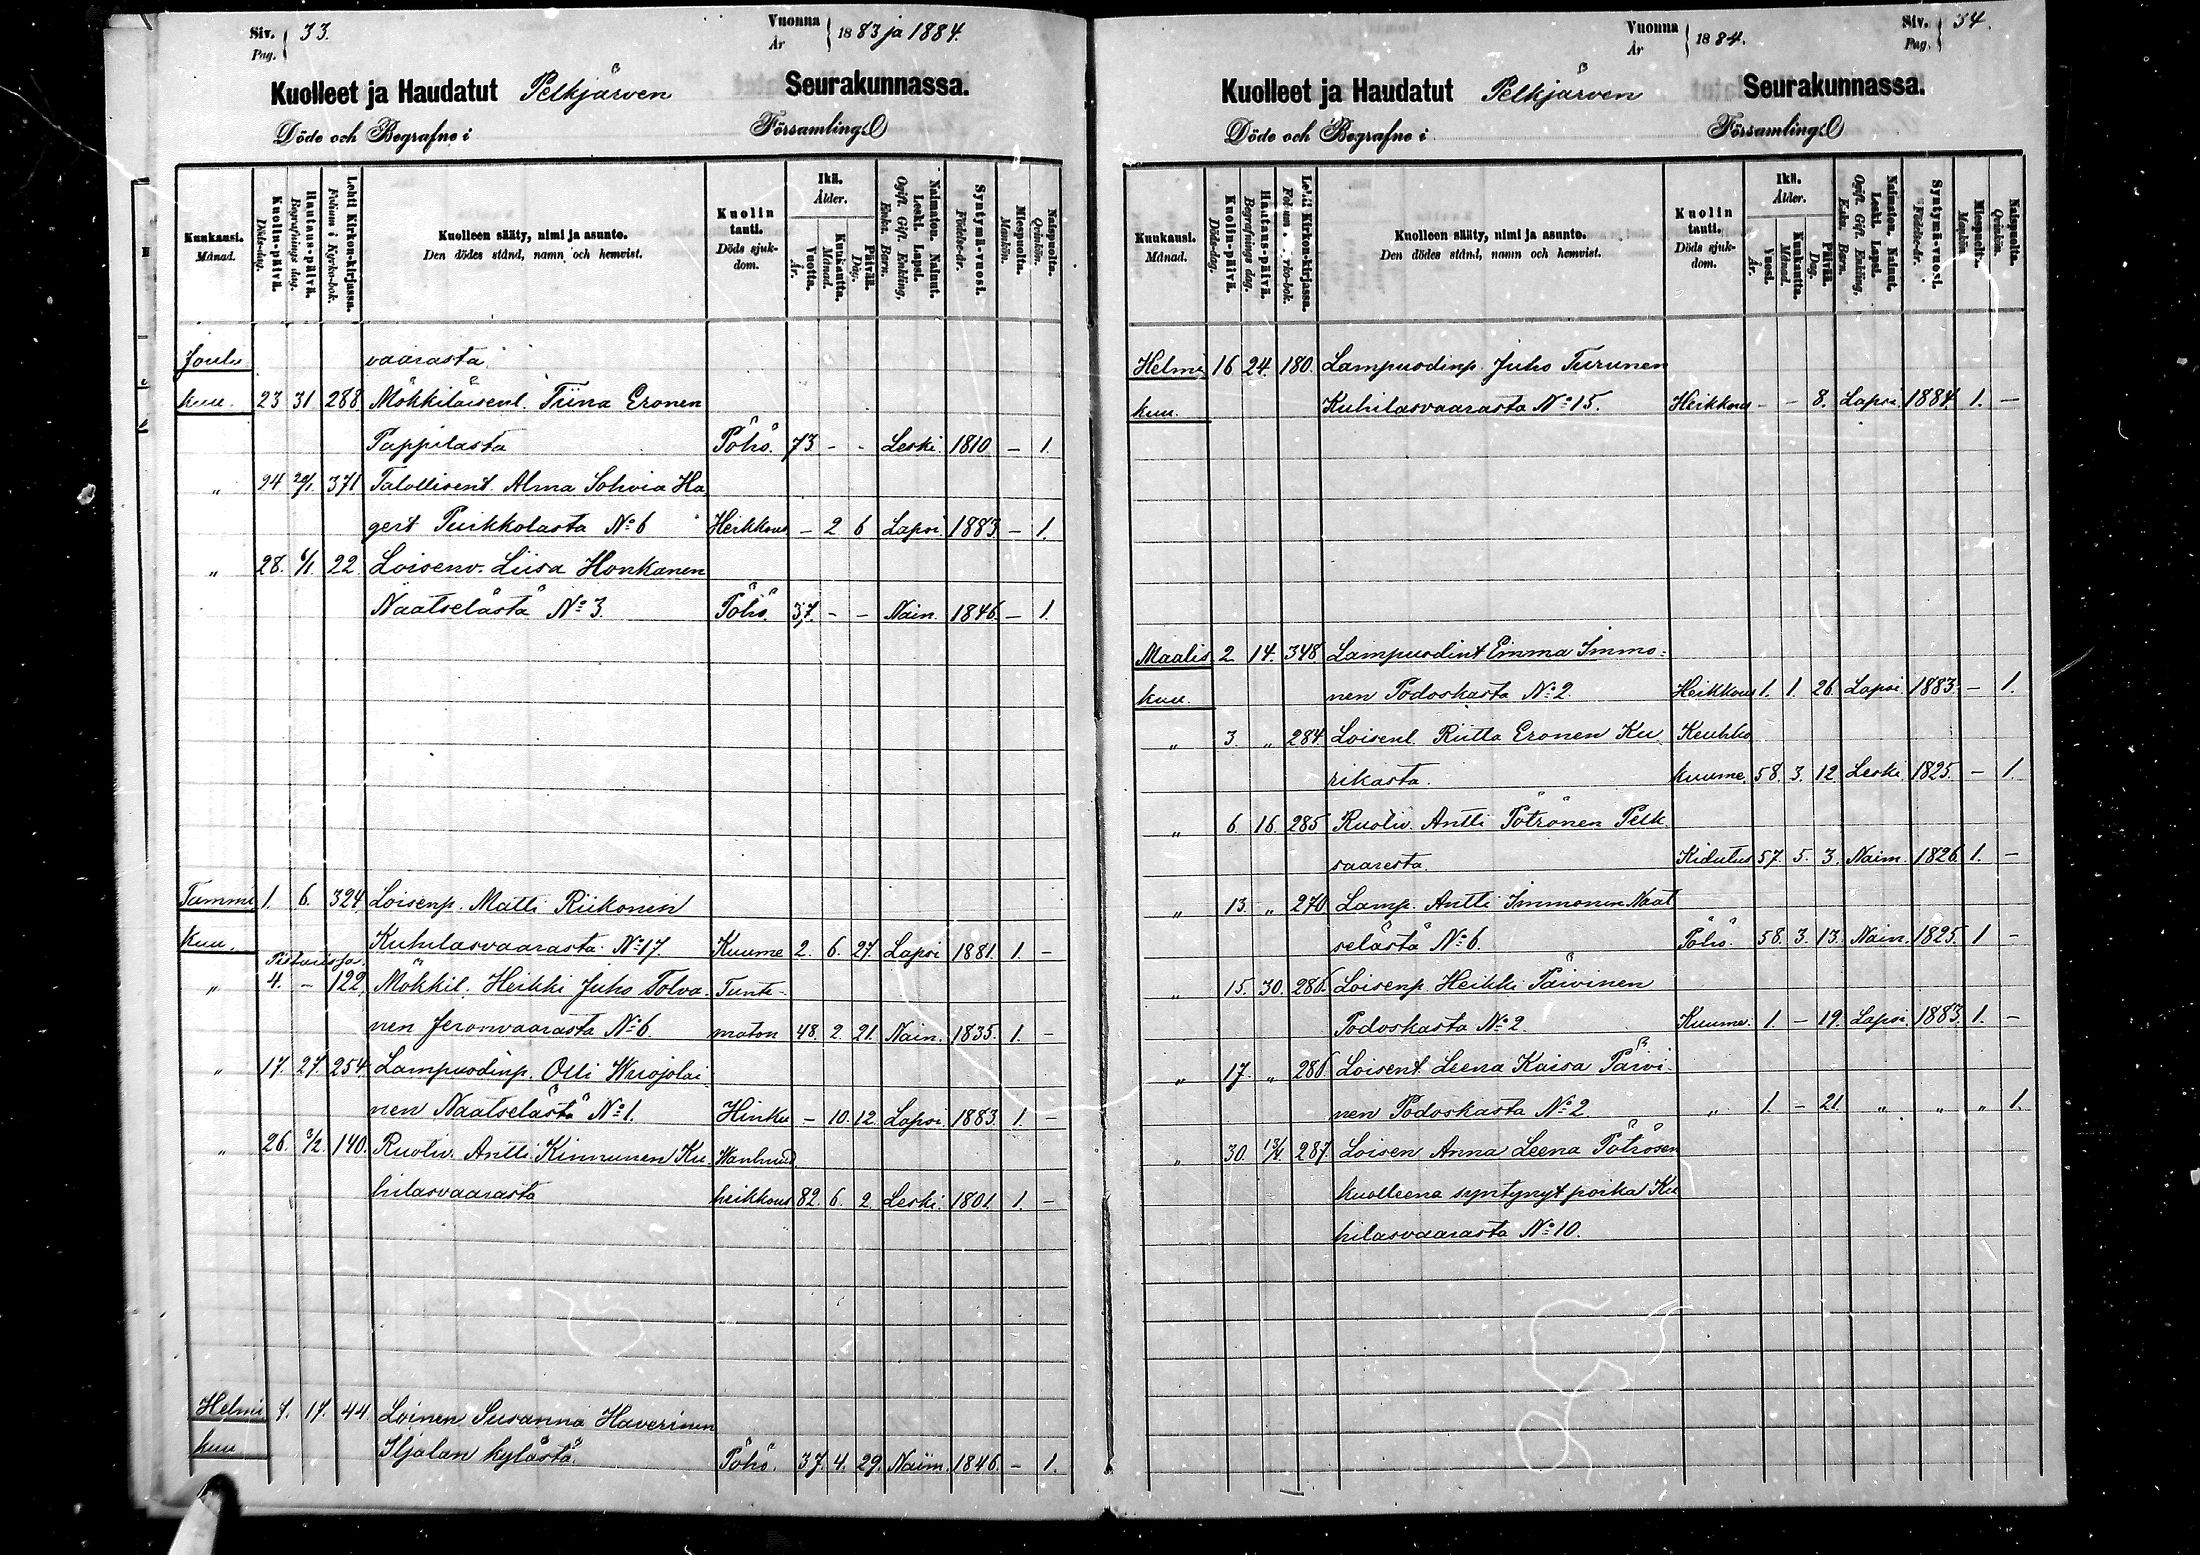 Siv. 33. Vuonna 1883 ja 1884.
Pag. År
Kuolleet ja Haudatut Pelkjärven Seurakunnassa.
Döde och Begrafne i Församling.
Kuukausi. Månad.
Kuolin-päivä. Döds-dag.
Hautaus-päivä. Begrafnings dag.
Lehti Kirkon-kirjassa. Folium i Kyrko-bok.
Kuolleen sääty, nimi ja asunto. Den dödes stånd, namn och hemvist.
Kuolin tauti. Döds sjukdom.
Ikä. Ålder.
Vuotta. År.
Kuukautta. Månad.
Päivää. Dag.
Naimaton. Nainut. Leski. Lapsi. Ogift. Gift. Enkling, Enka. Barn.
Syntymä-vuosi. Födelse-år.
Miespuolta. Mankön.
Naispuolta. Qvinkön.
Joulu vaarasta
kuu. 23 31 288 Mökkiläisenl. Tiina Eronen
Pappilasta Pöhö. 73 - - Leski. 1810 - 1.
" 24 20/1 371 Talollisent. Alma Sohvia Ha
gert Purkkolasta No 6 Heikkous - 2 6 Lapsi. 1883. - 1.
" 28. 6/1. 22. Loisenv. Liisa Honkanen
Naatselästä No 3. Pöhö. 37. - - Nain. 1846. - 1.
Tammi 1. 6. 324 Loisenp. Matti Riikonen
kuu. Kuhilasvaarasta No 17. Kuume 2. 6. 27. Lapsi 1881. 1. -
Pietarissa.
" 4. - 122. Mökkil. Heikki Juho Tolva- Tunte-
nen Jeronvaarasta No 6. maton 48. 2. 21. Nain. 1835. 1. -
" 17. 27. 254. Lampuodinp. Olli Wuojolai
nen Naatselästä No 1. Hinku - 10. 12. Lapsi. 1883. 1. -
" 26. 3/2. 140. Ruotiv. Antti Kinnunen Ku Wanhuud
hilasvaarasta heikkous 82. 6. 2. Leski. 1801. 1. -
Helmi 7. 17. 44. Loinen Susanna Haverinen
kuu Iljalan kylästä. Pöhö. 37. 4. 29. Naim. 1846. - 1.
Vuonna 1884. Siv. 34.
År Pag.
Kuolleet ja Haudatut Pelkjärven Seurakunnassa.
Döde och Begrafne i Församling.
Kuukausi. Månad.
Kuolin-päivä. Döds-dag.
Hautaus-päivä. Begrafnings dag.
Kuolleen sääty, nimi ja asunto. Den dödes stånd, namn och hemvist.
Kuolin tauti. Döds sjukdom.
Ikä. Ålder.
Vuosi. År.
Kuukautta. Månad.
Päivää. Dag.
Naimaton. Nainut. Leski. Lapsi. Ogift. Gift. Enkling, Enka. Barn.
Syntymä-vuosi. Födelse-år.
Miespuolta. Mankön.
Naispuolta. Qvinkön.
Helmi 16 24. 180. Lampuodinp. Juho Turunen
kuu. Kuhilasvaarasta No 15. Heikkous - - 8. Lapsi. 1884. 1. -
Maalis 2 14. 348 Lampuodint Emma Immo=
kuu. nen Podoskasta No 2. Heikkous 1. 1. 26 Lapsi 1883. - 1.
" 3. " 284 Loisenl. Riitta Eronen Ku Keuhko
rikasta. kuume. 58. 3. 12. Leski. 1825. - 1
" 6. 16. 285 Ruotiv. Antti Pötrönen Pelk
saaresta. Kidutus 57. 5. 3. Naim. 1826. 1. -
" 13. " 270 Lamp. Antti Immonen Naat
selästä No 6. Pöhö. 58. 3. 13. Nain. 1825. 1 -
" 15. 30. 286. Loisenp. Heikki Päivinen
Podoskasta No 2. Kuume. 1. - 19. Lapsi. 1883. 1. -
" 17. " 286 Loisent. Leena Kaisa Päivi-
nen Podoskasta No 2 " 1. - 21. " " " 1.
" 30. 13/4. 287 Loisen Anna Leena Pötrösen
kuolleena syntynyt poika Ku
hilasvaarasta No 10.